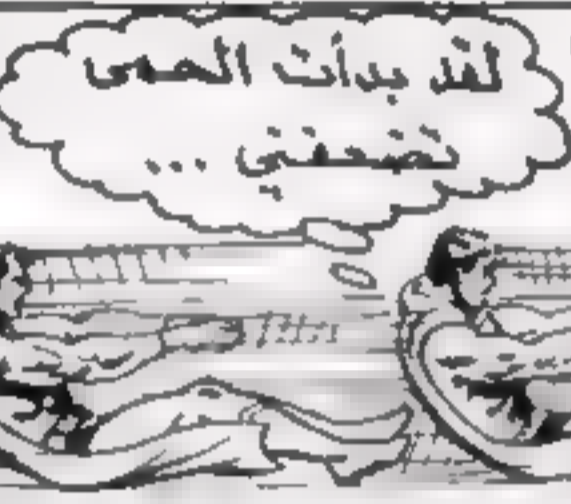 لقد بدأت الحمى
تضعفني ...